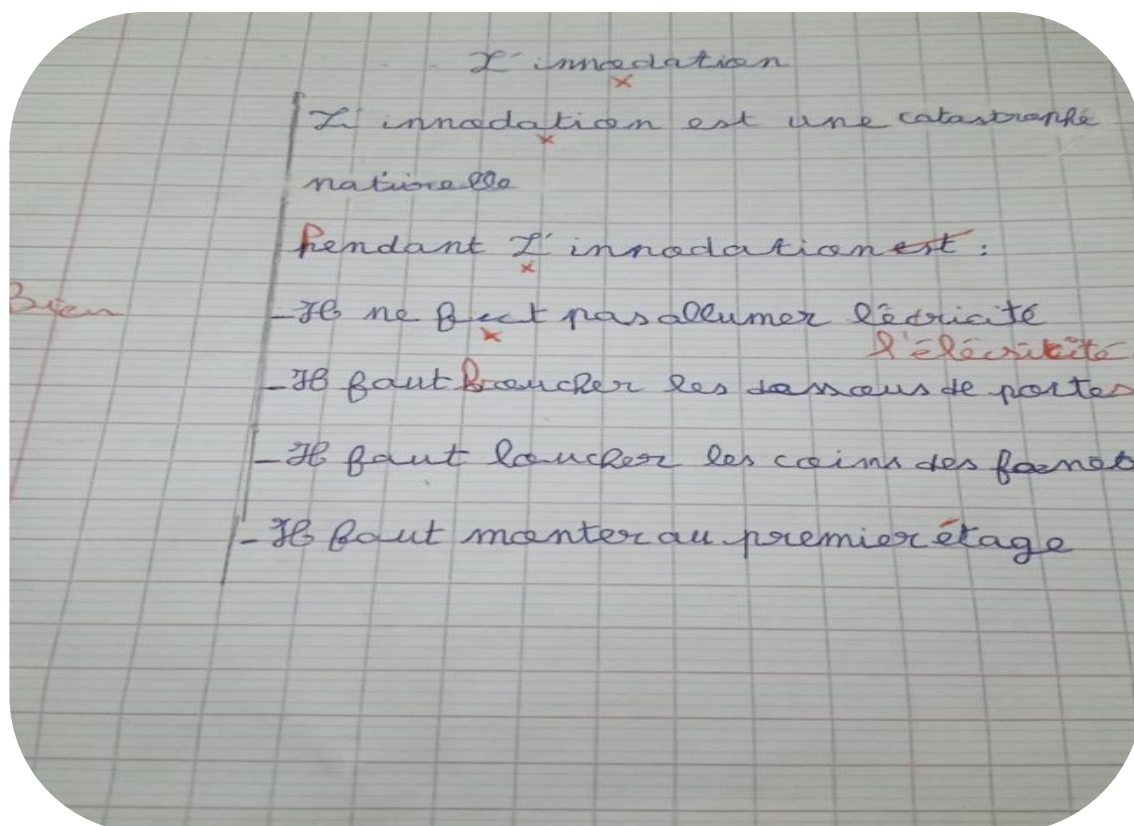 L'innodation
L'innodation est une catastrophe
naturelle
Pendant L'innodation est :
Bien
- Il ne faut pas allumer l'édricité
l'élécrikité
- Il faut boucher les dessous de portes
- Il faut loucher les coins des
- Il faut monter au premier étage